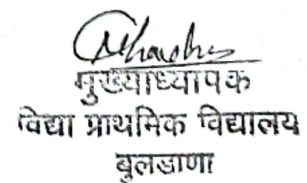 मुख्याध्यापक
विद्या प्राथमिक विद्यालय
बुलडाणा